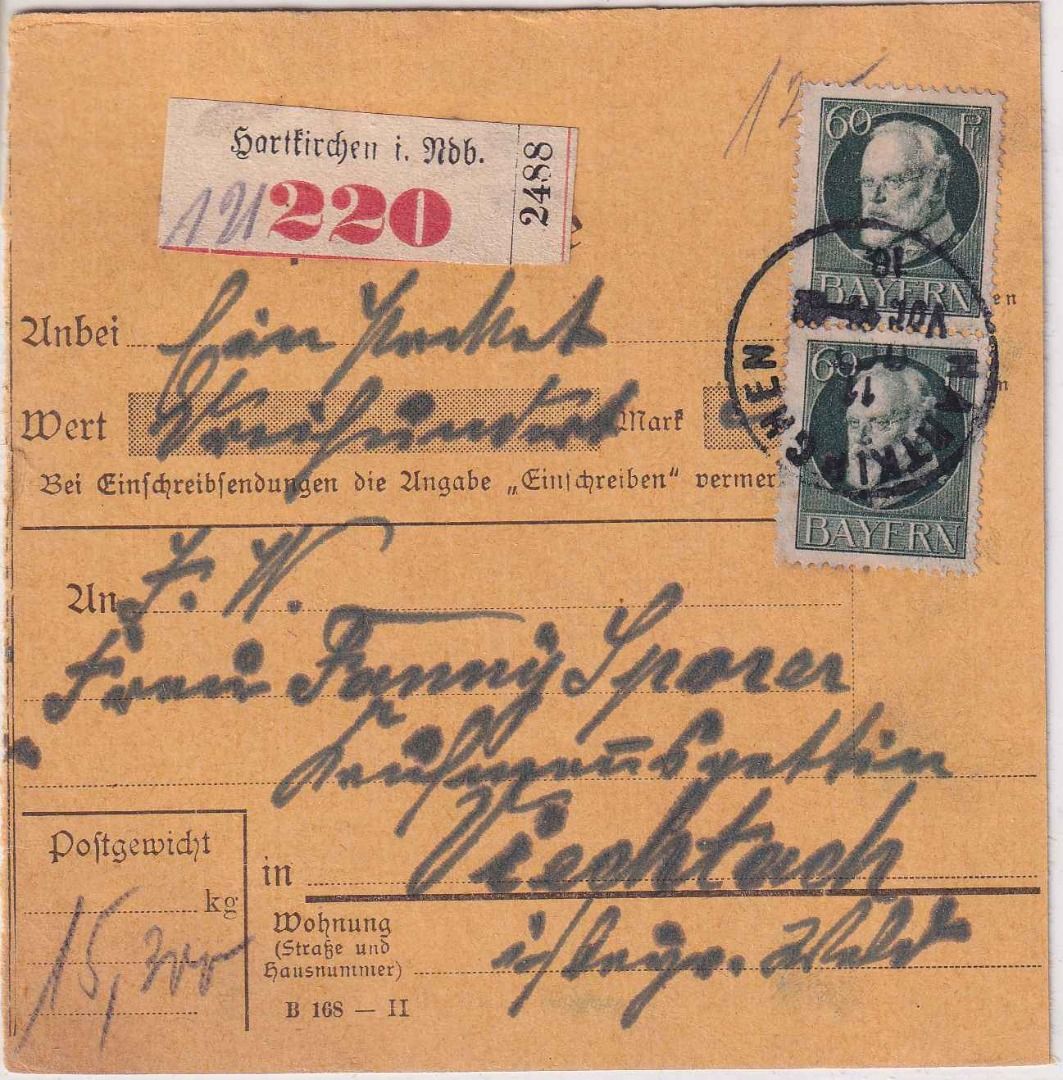 Hartkirchen i. Ndb.
121 220
2488
12
60 Pf
BAYERN
60
BAYERN
HARTKIRCHEN
Anbei Ein Packet
Wert Dreihundert Mark
Bei Einschreibsendungen die Angabe „Einschreiben“ vermer
An F. W.
Frau Fanny Sporer
Kaufmannsgattin
in Viechtach
Wohnung
(Straße und
Hausnummer)
i/bayr. Wald
Postgewicht
kg
15,
B 168 — II